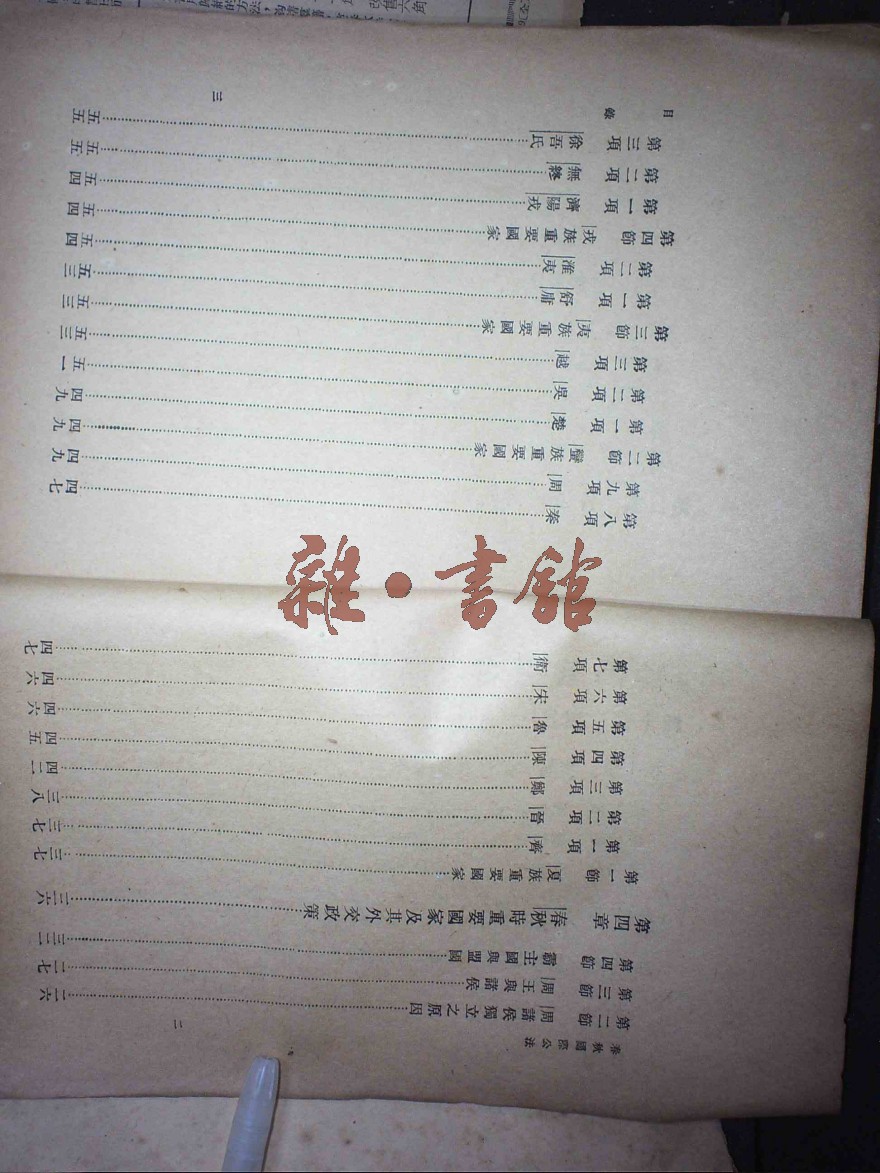 春秋國際公法
二
第二節 周諸侯獨立之原因……二六
第三節 周王與諸侯……二七
第四節 霸主國與盟國……三三
第四章 春秋時重要國家及其外交政策……三六
第一節 夏族重要國家……三七
第一項 齊……三七
第二項 晉……三八
第三項 鄭……四二
第四項 陳……四五
第五項 魯……四六
第六項 宋……四六
第七項 衛……四七
第八項 秦……四七
第九項 周……四九
第二節 蠻族重要國家……四九
第一項 楚……四九
第二項 吳……五一
第三項 越……五三
第三節 夷族重要國家……五三
第一項 舒庸……五三
第二項 淮夷……五四
第四節 戎族重要國家……五四
第一項 濟陽戎……五四
第二項 無終……五五
第三項 徐吾氏……五五
目錄
三
雜·書館